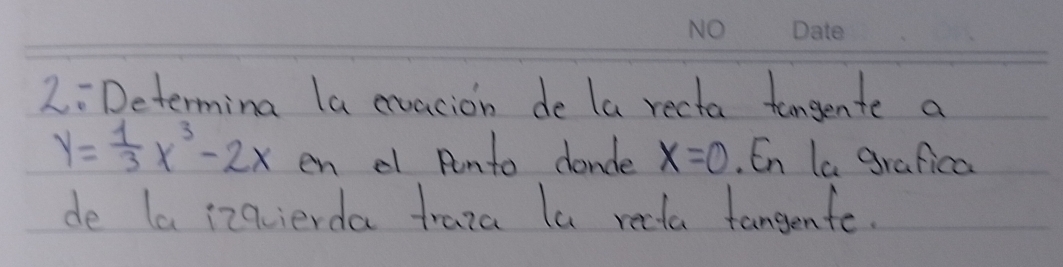 NO Date
2.- Determina la ecuación de la recta tangente a
y = 1/3 x³ - 2x en el punto donde x=0. En la grafica
de la izquierda traza la recta tangente.